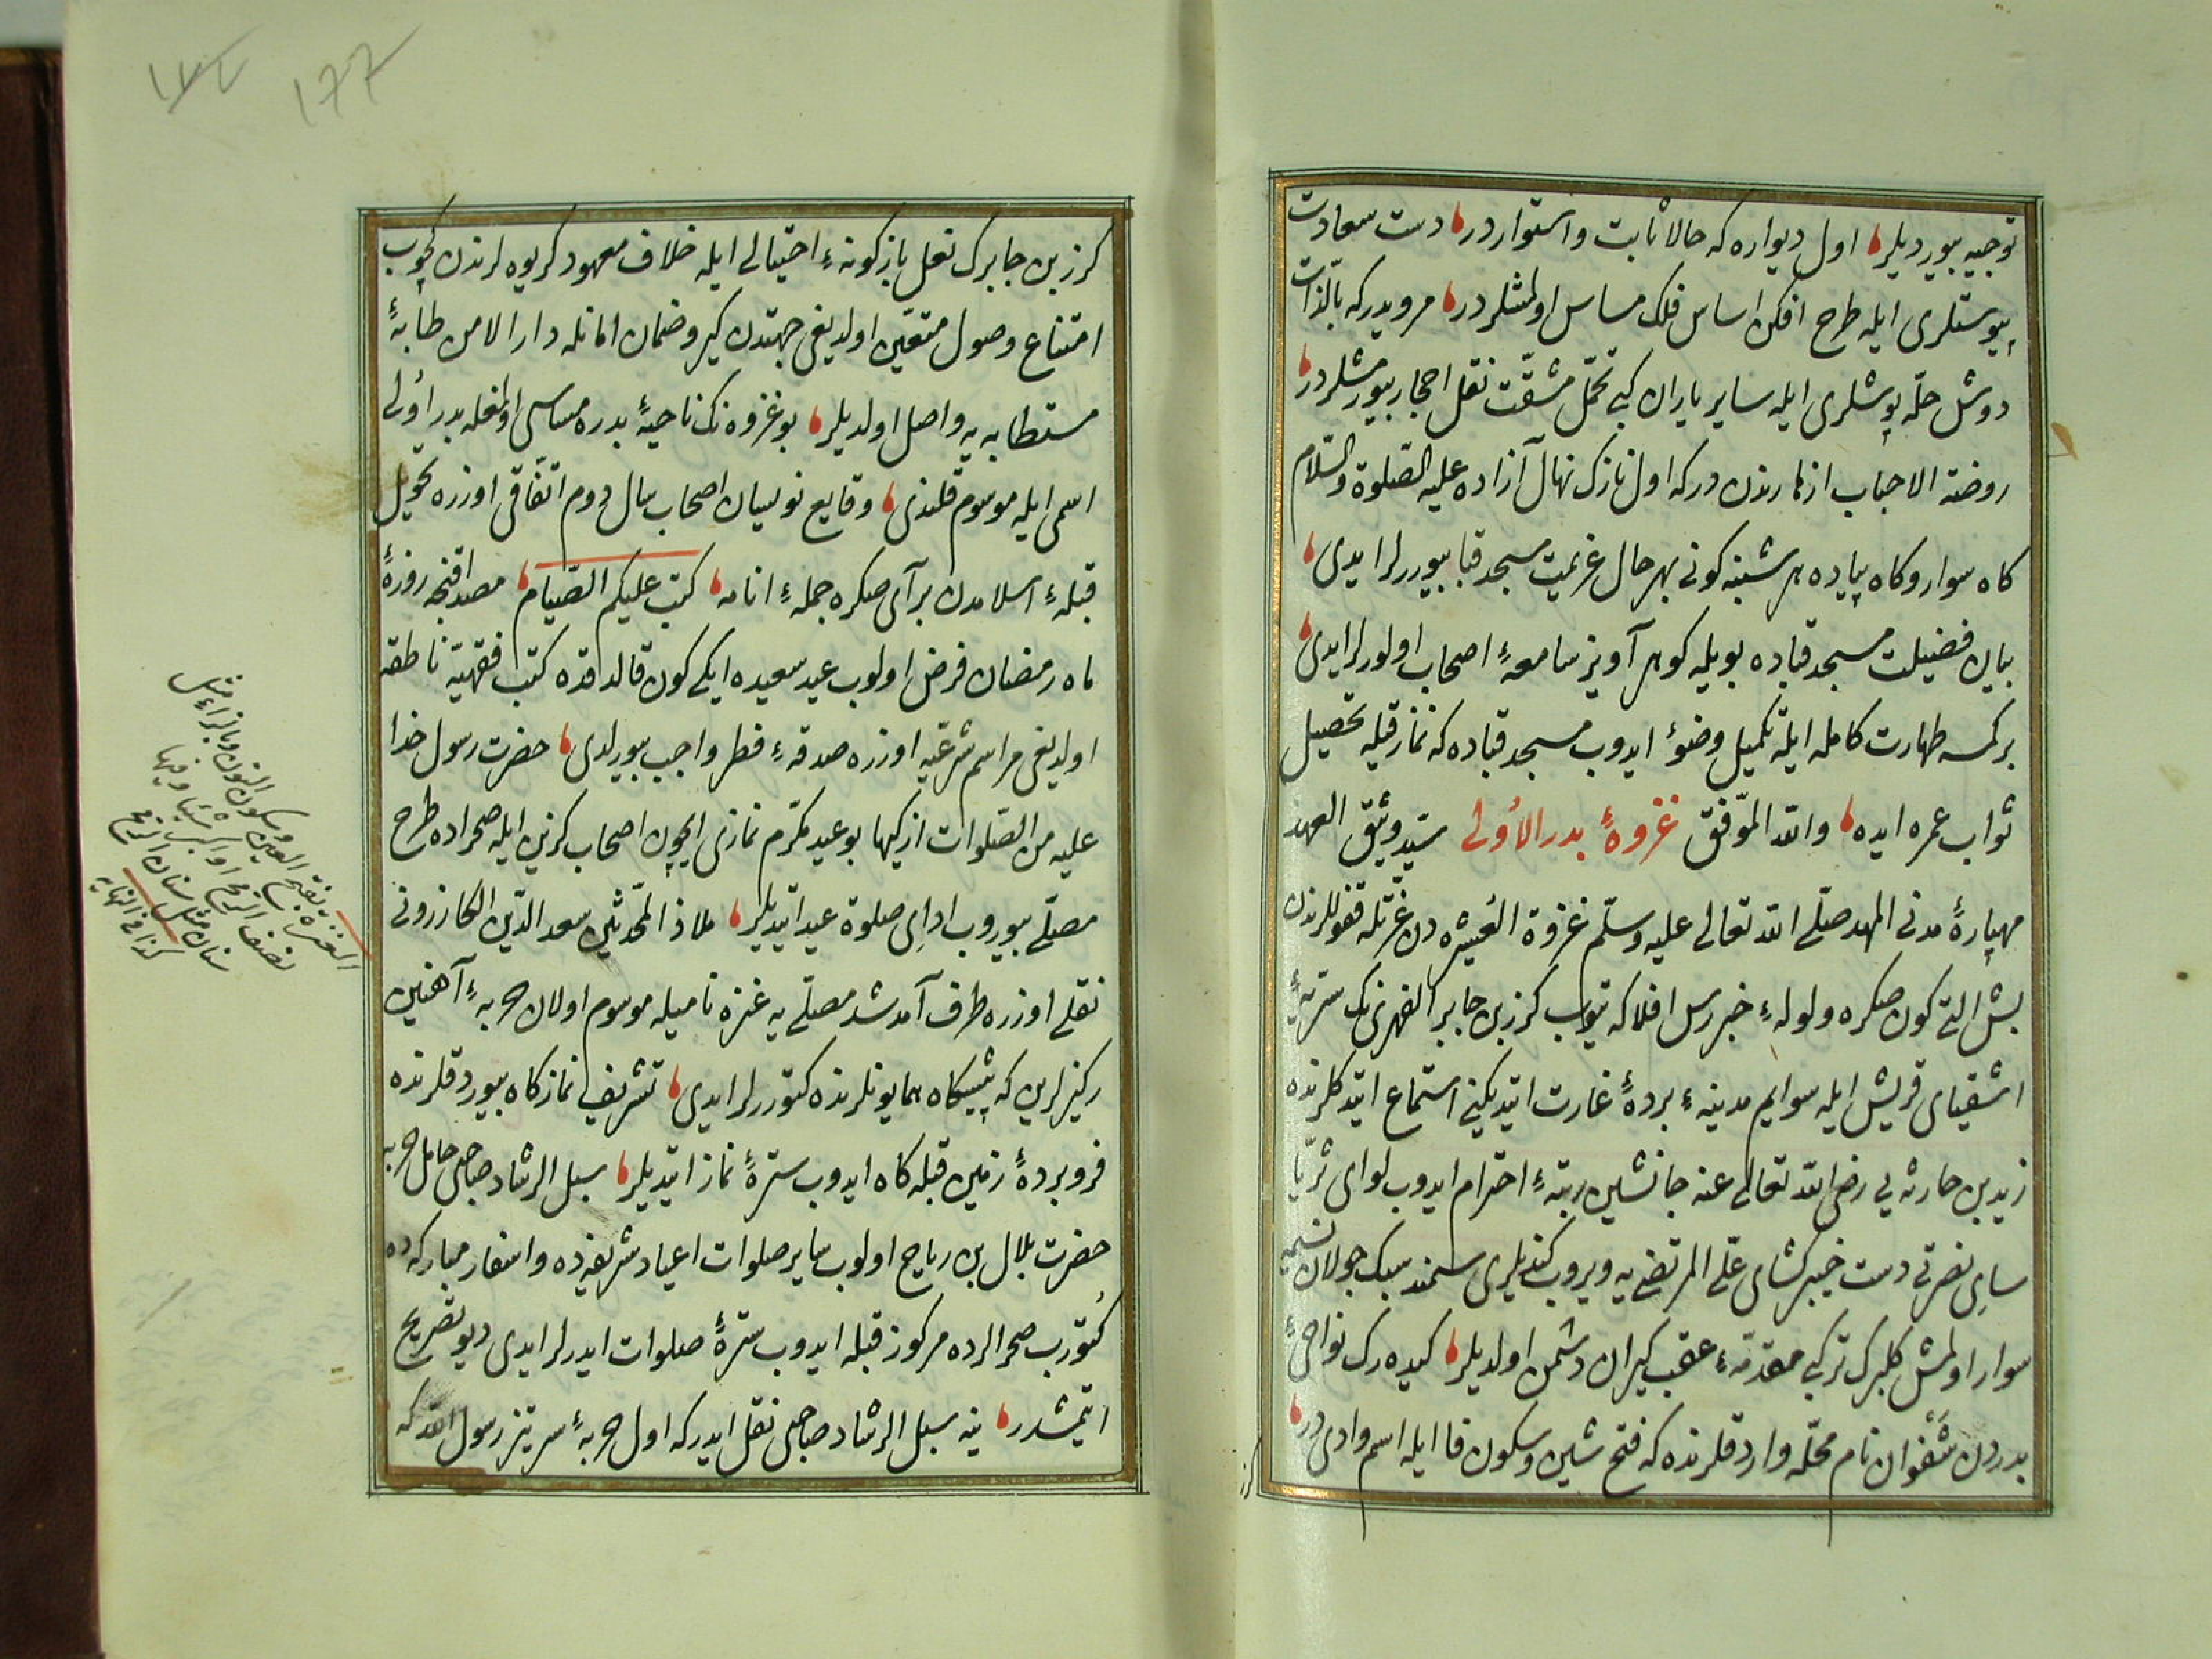 توجیه بیوردیلر اول دیواره که حالا ثابت واستواردر دست سعادت
پیوستلری ایله طرح افکن اساس فلک مساس اولمشلردر مرویدرکه بالذات
دوش حله پوشلری ایله سایر یاران کبی تحمّل مشقّت نقل احجار بیورمشلردر
روضة الاحباب ازهارندن درکه اول نازک نهال آزاده علیه الصلوة والسّلام
کاه سوار وکاه پیاده هر شنبه کونی بهر حال عزیمت مسجد قبا بیوررلر ایدی
بیان فضیلت مسجد قباده بویله کوهر آویز سامعهٔ اصحاب اولورلر ایدی
برکسه طهارت کامله ایله تکمیل وضوء ایدوب مسجد قباده که نماز قیله تحصیل
ثواب عمره ایده والله الموّفق غزوهٔ بدر الاُولی سیّد وثیق العهد
مهپارهٔ مدنی المهد صلّی الله تعالی علیه وسلّم غزوة العُشیره دن عزّتله قفوللرندن
بش التی کون صکره ولولهٔ خبررس افلاکه کرزبن جابر الفهری نک سریهٔ
اشقیای قریش ایله سوایم مدینهٔ بردهٔ غارت ایتدیکنی استماع ایتدکلرنده
زیدبن حارثه یی رضی الله تعالی عنه جانشین رتبهٔ احترام ایدوب لوای ثریّا
سای نصرتی دست خیبرکشای علی المرتضی یه ویروب کندیلری سمند سبک جولان
سوار اولمش کلبرک ترکبی مقدّمهٔ عقب کیران دشمن اولدیلر کیده رک نواحیٔ
بدردن شَفَوان نام محلّه وارد قلرنده که فتح شین وسکون فا ایله اسم وادی در
کرز
١٧٧
کرزبن جابرک نعل بازکونهٔ احتیالی ایله خلاف معهود کریوه لرندن کچوب
امتناع وصول متعیّن اولدیغی جهتدن کیرو ضمان امانله دار الامن طابهٔ
مستطابه یه واصل اولدیلر بو غزوه نک ناحیهٔ بدره مساسی اولمغله بدر اُولی
اسمی ایله موسوم قلندی وقایع نویسان اصحاب سال دوم اتّفاقی اوزره تحویل
قبلهٔ اسلامدن برآی صکره جملهٔ انامه کتب علیکم الصّیام مصداقنجه روزهٔ
ماه رمضان فرض اولوب عید سعیده ایکی کون قالدقده کتب فقهیّه ناطقه
اولدیغی مراسم شرعیّه اوزره صدقهٔ فطر واجب بیورلدی حضرت رسول خدا
علیه من الصّلوات ازکیها بو عید مکرّم نمازی ایچون اصحاب کزین ایله صحراده طرح
مصلّی بیوروب ادای صلوة عید ایتدیلر ملاذ المحّدثین سعد الدّین الکازرونی
نقلی اوزره طرف آمد شد مصلّی یه عنزه نامیله موسوم اولان حربهٔ آهنین
رکیزلرین که پیشکاه همایونلرنده کتوررلر ایدی تشریف نمازکاه بیوردقلرنده
فروبردهٔ زمین قبله کاه ایدوب سترهٔ نماز ایتدیلر سبل الرشاد صاحبی حامل حربه
حضرت بلال بن رباح اولوب سایر صلوات اعیاد شریفه ده واسفار مبارکه ده
کُتورب صحرالرده مرکوز قبله ایدوب سترهٔ صلوات ایدرلر ایدی دیو تصریح
ایتمشدر ینه سبل الرشاد صاحبی نقل ایدرکه اول حربهٔ سرتیز رسول الله که
العنزة بفتح العین وسکون النون وبالزاء مثل
نصف الرمح او اکبر شیئا وفیها
سنان مثل سنان الرمح
کذا فی النهایه